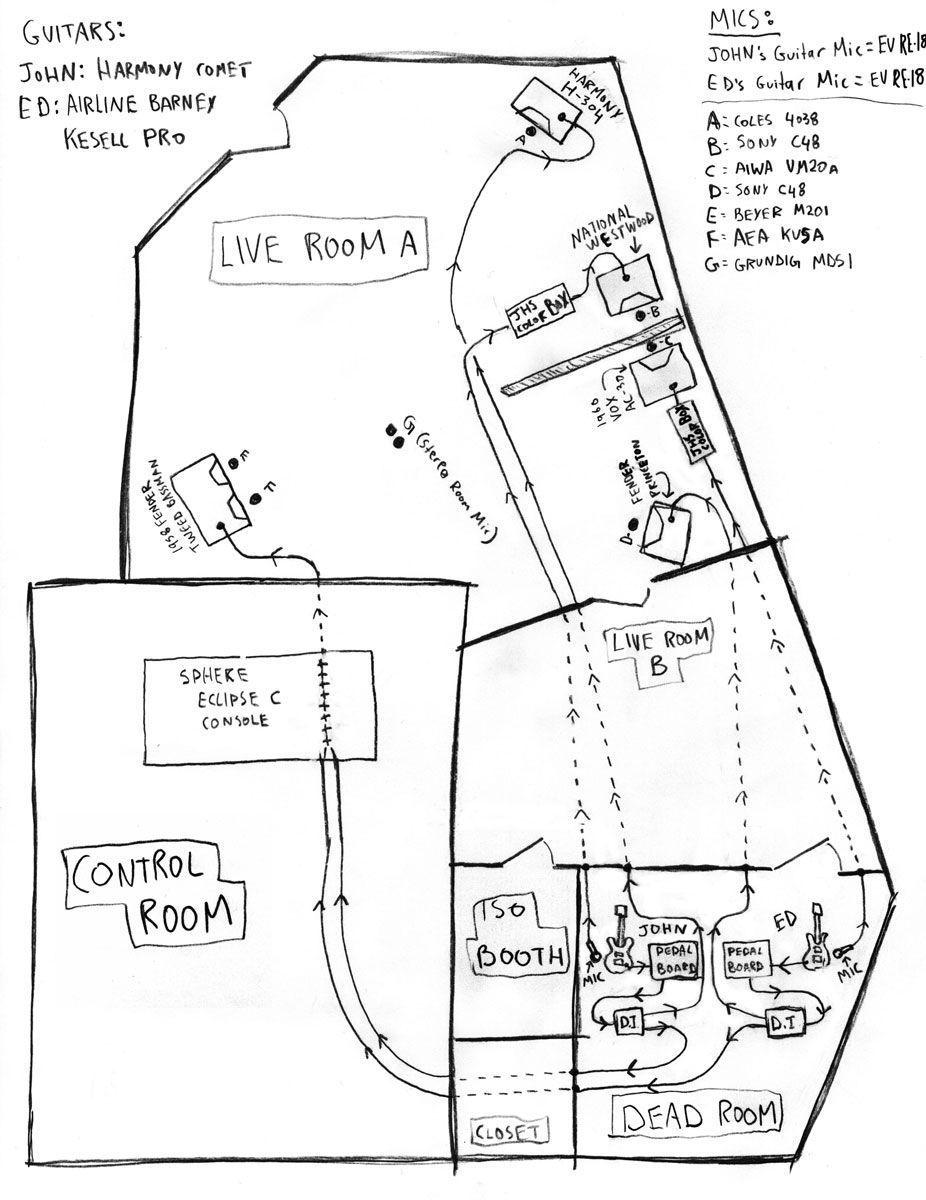 GUITARS:
JOHN: HARMONY COMET
ED: AIRLINE BARNEY
KESELL PRO
MICS:
JOHN's Guitar Mic = EV RE-18
ED's Guitar Mic = EV RE-18
A = COLES 4038
B = SONY C48
C = AIWA VM20A
D = SONY C48
E = BEYER M201
F = AEA KU5A
G = GRUNDIG MDS1
HARMONY
H-304
A
LIVE ROOM A
NATIONAL
WESTWOOD
JHS
COLOR BOX
-B
-C
1960
VOX
AC-30
JHS
COLOR BOX
G (Stereo Room Mic)
FENDER
PRINCETON
D
E
F
1958 FENDER
TWEED BASSMAN
LIVE ROOM
B
SPHERE
ECLIPSE C
CONSOLE
CONTROL
ROOM
ISO
BOOTH
JOHN
ED
MIC
PEDAL
BOARD
PEDAL
BOARD
MIC
D.I.
D.I
DEAD ROOM
CLOSET